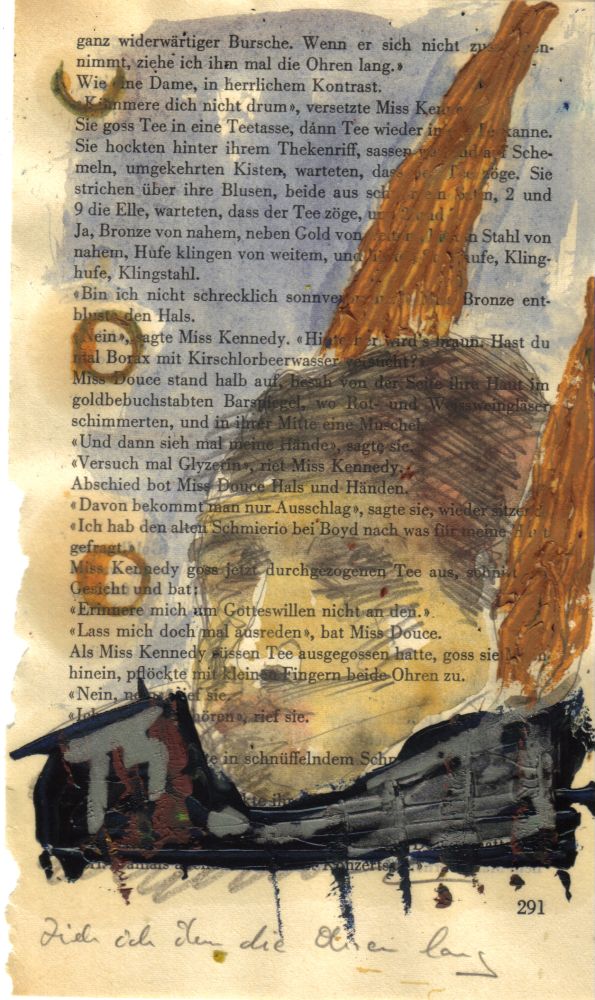 ganz widerwärtiger Bursche. Wenn er sich nicht
nimmt, ziehe ich ihm mal die Ohren lang.»
Wie eine Dame, in herrlichem Kontrast.
«Kümmere dich nicht drum», versetzte Miss Kennedy.
Sie goss Tee in eine Teetasse, dann Tee wieder in Teekanne.
Sie hockten hinter ihrem Thekenriff, sassen auf Sche-
meln, umgekehrten Kisten, warteten, dass Tee zöge. Sie
strichen über ihre Blusen, beide aus 2 und
9 die Elle, warteten, dass der Tee zöge,
Ja, Bronze von nahem, neben Gold von Stahl von
nahem, Hufe klingen von weitem, und Kling-
hufe, Klingstahl.
«Bin ich nicht schrecklich Bronze ent-
bluste den Hals.
«Nein», sagte Miss Kennedy. wird's braun. Hast du
mal Borax mit Kirschlorbeerwasser versucht?»
Miss Douce stand halb auf, besah von der Seite ihre Haut im
goldbebuchstabten Barspiegel, wo Rot- und Weissweingläser
schimmerten, und in ihrer Mitte eine Muschel.
«Und dann sieh mal meine Hände», sagte sie.
«Versuch mal Glyzerin», riet Miss Kennedy.
Abschied bot Miss Douce Hals und Händen.
«Davon bekommt man nur Ausschlag», sagte sie, wieder sitzend.
«Ich hab den alten Schmierio bei Boyd nach was für meine Haut
gefragt.»
Miss Kennedy goss jetzt durchgezogenen Tee aus,
Gesicht und bat:
«Erinnere mich um Gotteswillen nicht an den.»
«Lass mich doch mal ausreden», bat Miss Douce.
Als Miss Kennedy süssen Tee ausgegossen hatte, goss sie
hinein, pflöckte mit kleinen Fingern beide Ohren zu.
«Nein, rief sie.
rief sie.
in schnüffelndem
Konzerts
291
Zieh ich ihm die Ohren lang